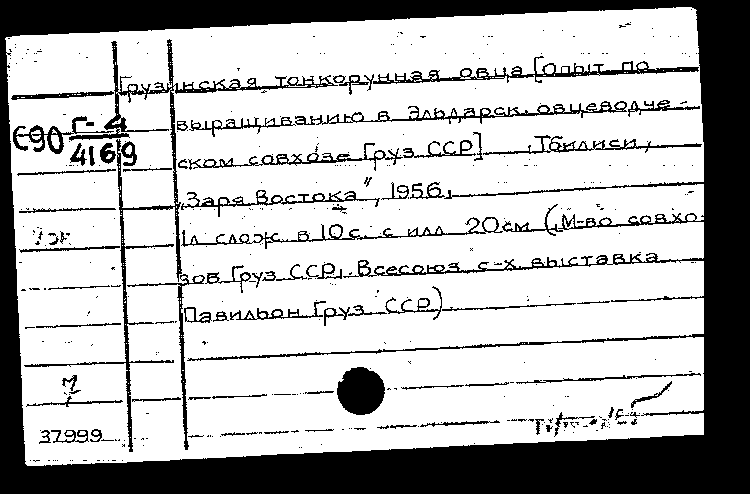 Грузинская тонкорунная овца [Опыт по
выращиванию в Эльдарск. овцеводче-
Е90 Г-4
4169
ском совхозе Груз ССР] , Тбилиси,
„Заря Востока", 1956,
1 эк
1л слож. в 10с. с илл 20см (М-во совхо-
зов Груз ССР, Всесоюз с-х. выставка
Павильон Груз ССР)
37999